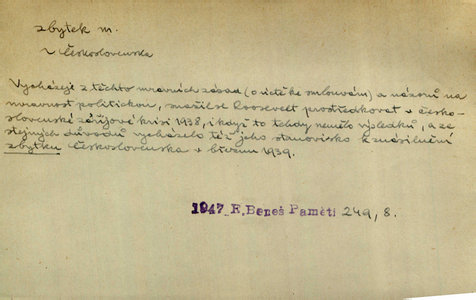 zbytek m.
v Československa
Vycházeje z těchto mravních zásad (o úctě ke smlouvám) a názorů na
mravnost politickou, snažil se Roosevelt prostředkovat v česko-
slovenské zářijové krisi 1938, i když to tehdy nemělo výsledků, a ze
stejných důvodů vycházelo též jeho stanovisko k znásilnění
zbytku Československa v březnu 1939.
1947 E. Beneš Paměti 249, 8.